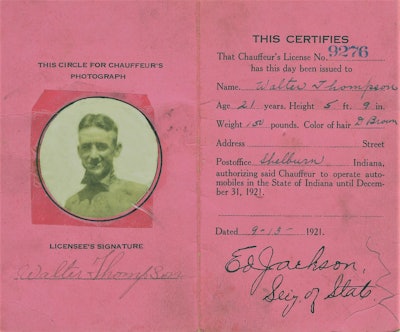 THIS CIRCLE FOR CHAUFFEUR'S
PHOTOGRAPH
LICENSEE'S SIGNATURE
Walter Thompson
THIS CERTIFIES
That Chauffeur's License No. 9276
has this day been issued to
Name, Walter Thompson
Age 21 years. Height 5 ft. 9 in.
Weight 150 pounds. Color of hair D Brown
Address Street
Postoffice Shelburn Indiana,
authorizing said Chauffeur to operate auto-
mobiles in the State of Indiana until Decem-
ber 31, 1921.
Dated 9-13- 1921.
Ed Jackson,
Secy. of State